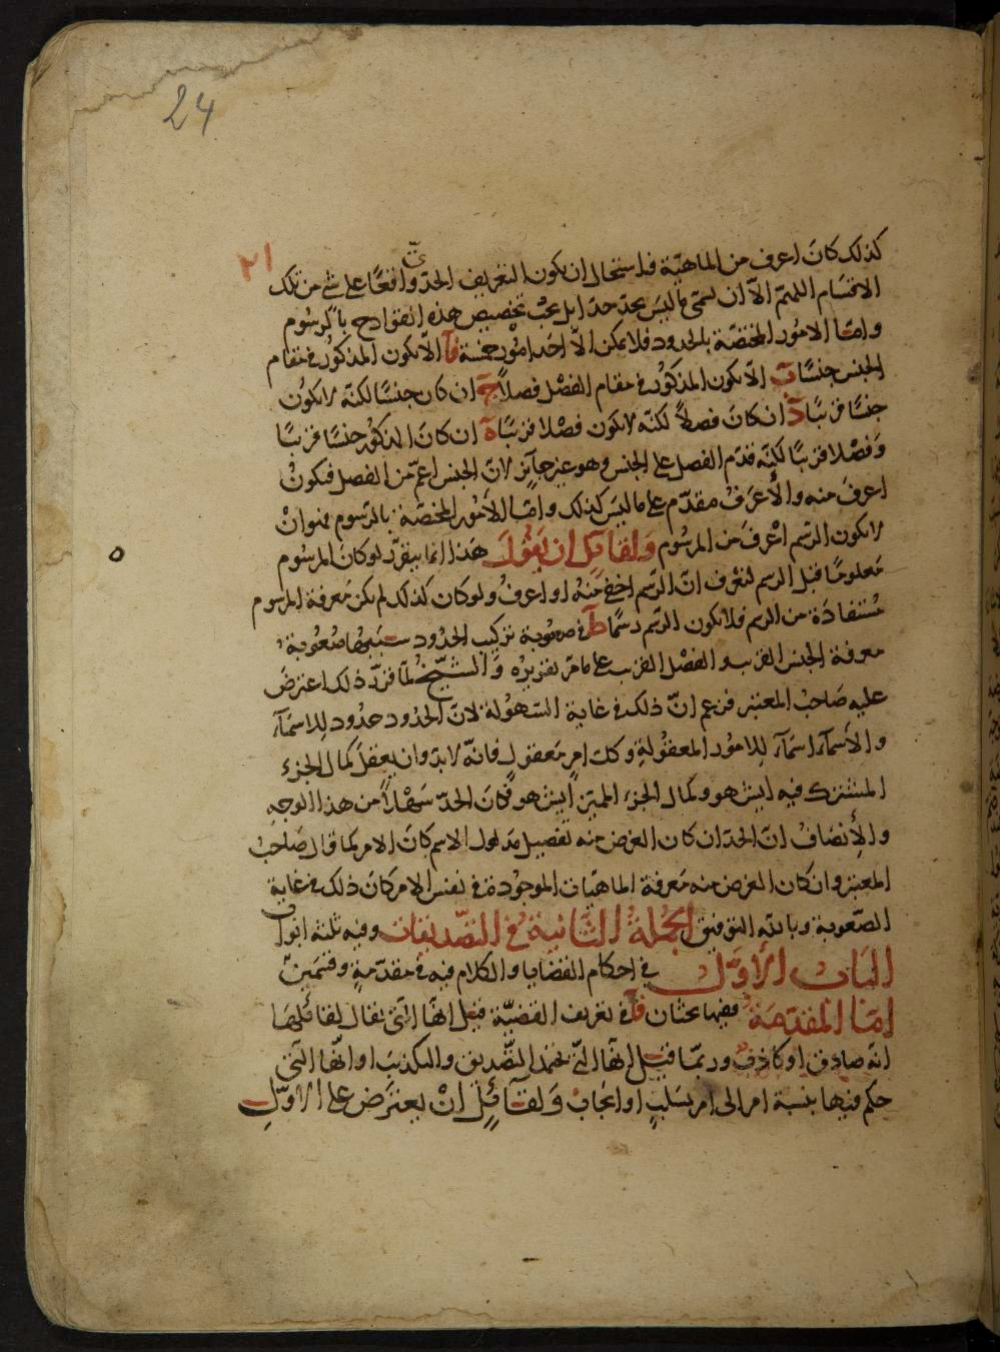 24
٢١
كذلك كان اعرف من الماهيّة فاستحال ان يكون التعريف الحدّى واقعًا على شئ من تلك
الاقسام اللهمّ الاّ ان يسمّى ما ليس بحدّ حدّا بل يجب تخصيص هذه القوادح بالرسوم
وامّا الامور المختصّة بالحدود فلا يمكن الاّ احد امور خمسة فآ الاّ يكون المذكور فى مقام
الجنس جنسًا بَ الاّ يكون المذكور فى مقام الفصل فصلاً جَ ان كان جنسًا لكنّه لا يكون
جنسًا قريبًا دَ ان كان فصلاً لكنّه لا يكون فصلا قريبًا هَ ان كان المذكور جنسًا قريبًا
وفصْلا قريبًا لكنّه قدّم الفصل على الجنس وهو غير جايز لانّ الجنس اعمّ من الفصل فيكون
اعرف منه والأعرف مقدّم على ما ليس كذلك وامّا الأمور المختصّة بالرسوم فهو ان
لا يكون الرسم اعْرف من المرسُوم وَلقائل ان يَقُولَ هذا انما يتقرّر لو كان المرسوم
مَعلومًا قبل الرسم لنعْرف انّ الرسم اخفى منْه او اعرف ولو كان كذلك لم يكن مَعرفة المرسوم
مُستفادَة من الرسم فلا يكون الرسم رسمًا طَ فى صعوبة تركيب الحدود سَببُها صُعُوبة
معرفة الجنس القريب والفصْل القريب على ما مرّ تقريره وَالشيخ لمّا قرّر ذلك اعترض
عليه صَاحبُ المعتبر فزعم انّ ذلك فى غاية السّهُولة لانّ الحدُود حدُود للاسمَآء
والأسمآء اسمَآء للامور المعقُولةِ وكلّ امرٍ مَعقولٍ فانّه لا بدّ وان يعقل كمال الجزء
المشترك فيه ايش هو وكمال الجزء المميّز ايش هو فكان الحدّ سَهْلاً من هذا الوجه
والإنصَاف انّ الحدّ ان كان الغرض منه تفصيل مَدلول الاسم كان الامر كما قال صَاحبُ
المعتبر وان كان الغرض منه مَعرفة الماهيّات الموجُودة فى نفس الامر كان ذلك فى غاية
الصّعوبة وبالله التوفيق الجُملةُ الثَّانيَة فى التصّديقات وفيه ثلثة ابواب
البَابُ الأوّلُ فى احكام القضايا والكلام فيه فى مقدّمةٍ وقسمَينِ
امّا المُقَدّمَة ففيها بحثان فآ فى تعريف القضيّة قيل انهَا الّتى يقال لقائلهَا
انّه صَادق او كاذبٌ وربمّا قيل انّها الّتى تحتمل التّصديق والتكذيبَ او انّها الّتى
حكم فيها بنسبة امر الى امر بسَلبٍ او ايجَابٍ وَلقائلٍ انْ يعتَرض على الاوّلِ